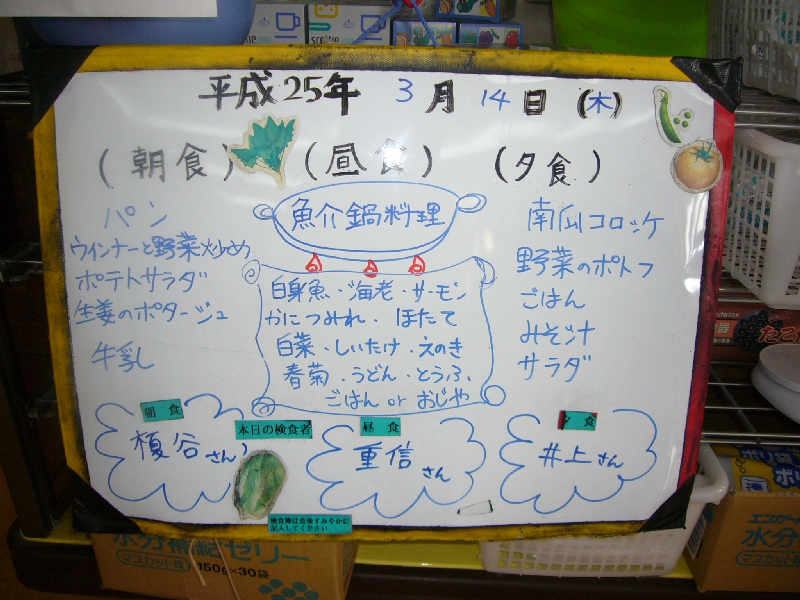 平成25年 3月 14日 (木)
(朝食)
(昼食)
(夕食)
パン
ウインナーと野菜炒め
ポテトサラダ
生姜のポタージュ
牛乳
魚介鍋料理
白身魚・海老・サーモン
かにつみれ・ほたて
白菜・しいたけ・えのき
春菊・うどん・とうふ
ごはん or おじや
南瓜コロッケ
野菜のポトフ
ごはん
みそ汁
サラダ
本日の検食者
朝食
榎谷さん
昼食
重信さん
夕食
井上さん
検食簿は食後すみやかに
記入してください
水分補給ゼリー
マスカット味
150g×30袋
水分
マスカット味
ポリ袋